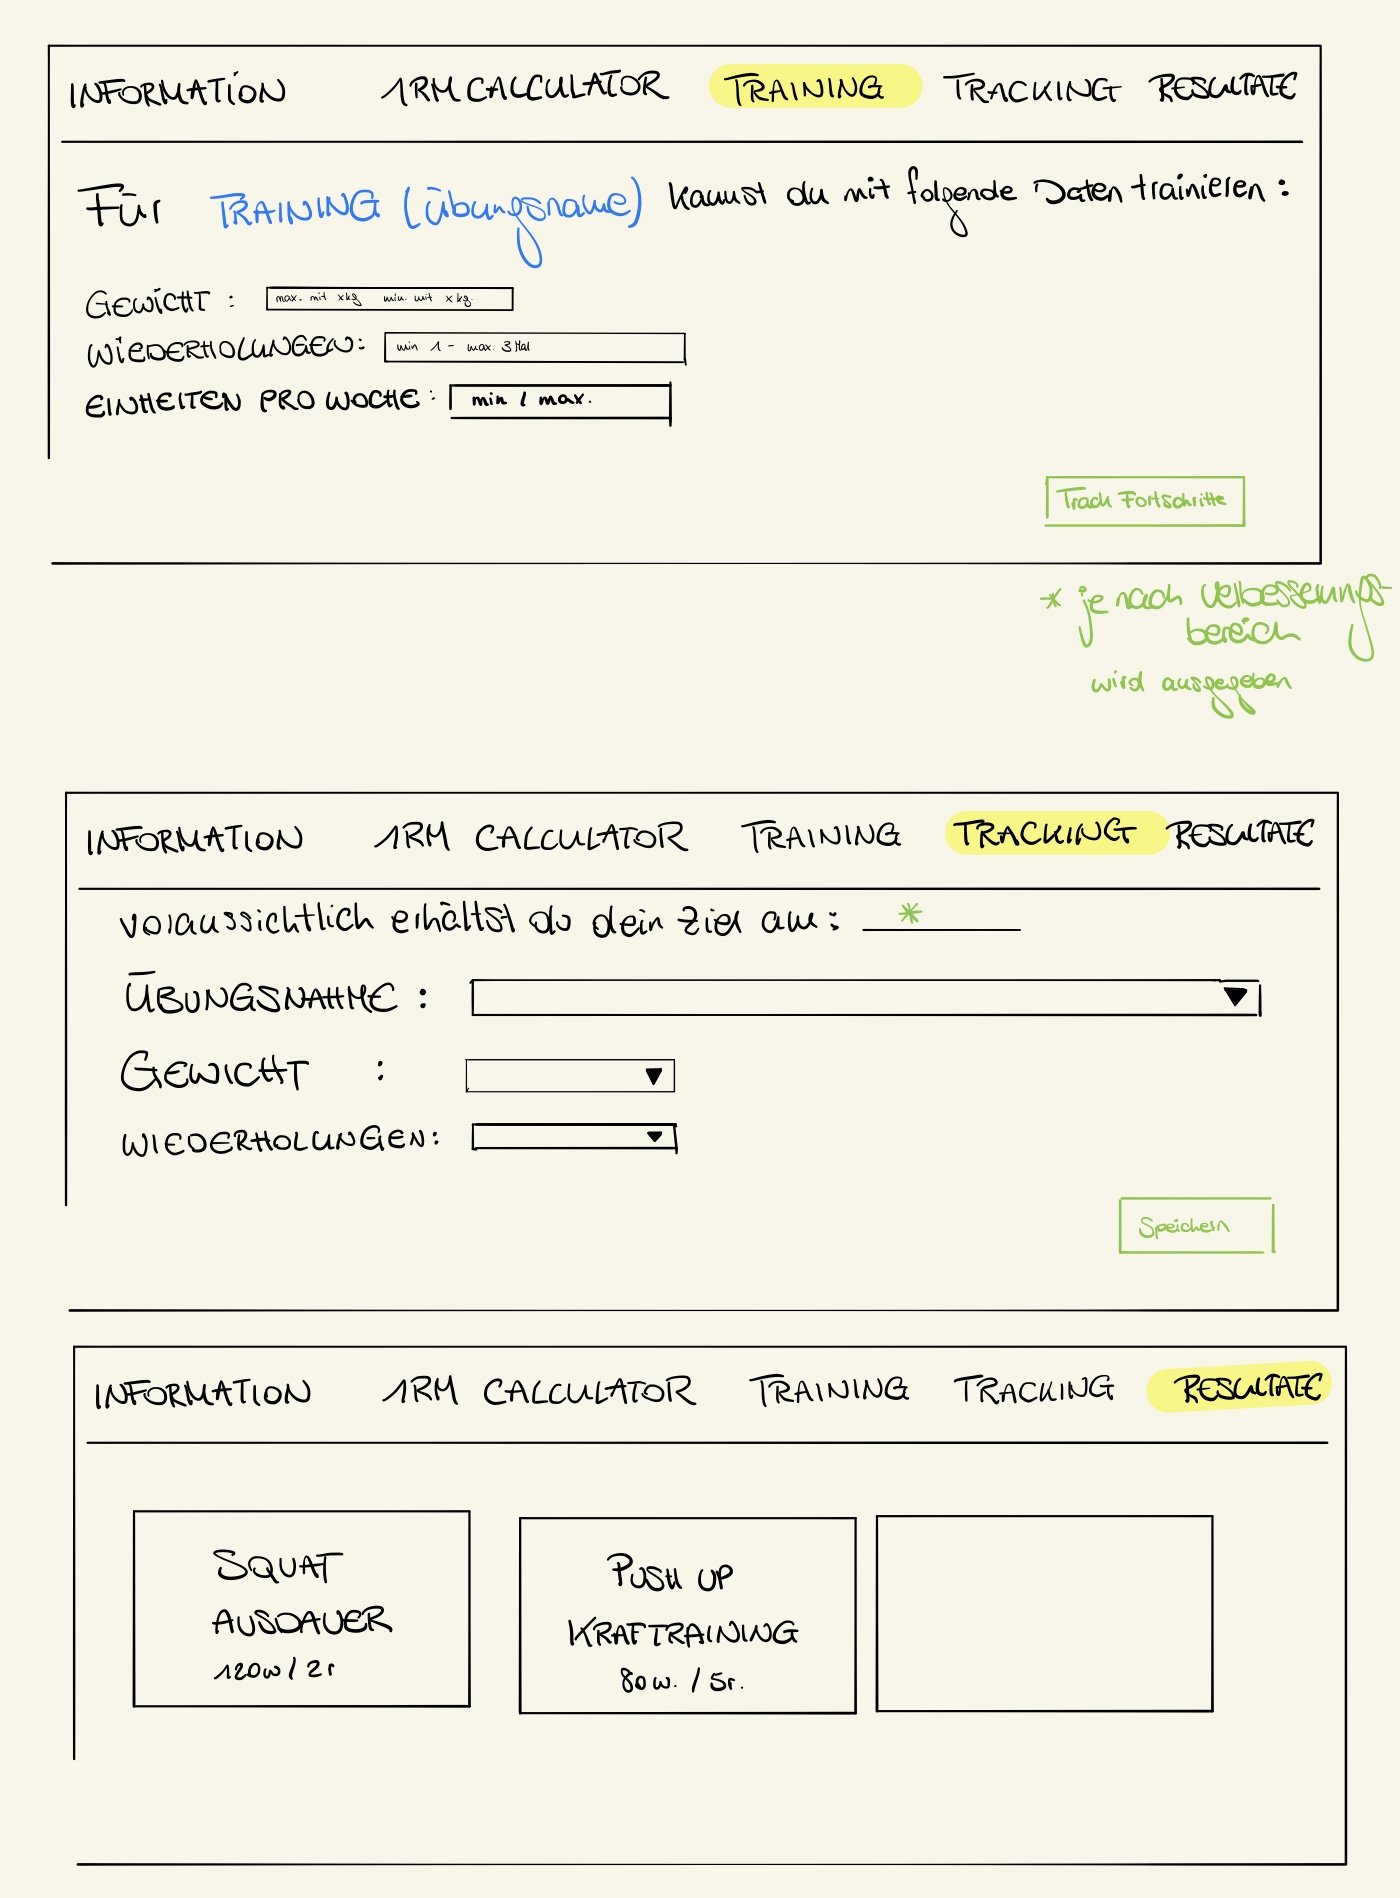 INFORMATION 1RM CALCULATOR TRAINING TRACKING RESULTATE
Für TRAINING (übungsname) kannst du mit folgende Daten trainieren :
GEWICHT : max. mit x kg min. mit x kg.
WIEDERHOLUNGEN: min 1 - max. 3 Mal
EINHEITEN PRO WOCHE : min / max.
Track Fortschritte
* je nach Verbesserungs-
bereich
wird ausgegeben
INFORMATION 1RM CALCULATOR TRAINING TRACKING RESULTATE
voraussichtlich erhältst du dein Ziel am : *
ÜBUNGSNAHME :
GEWICHT :
WIEDERHOLUNGEN:
Speichern
INFORMATION 1RM CALCULATOR TRAINING TRACKING RESULTATE
SQUAT
AUSDAUER
120w / 2r
PUSH UP
KRAFTRAINING
80 w. / 5r.